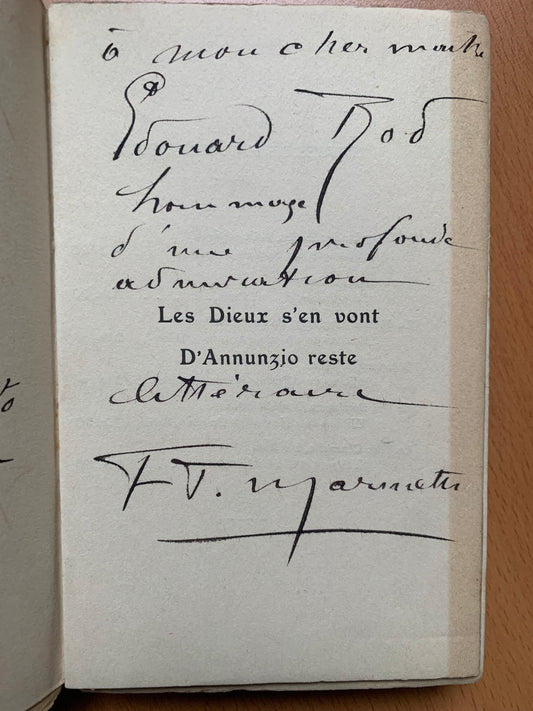 à mon cher maître
Edouard Rod
hommage
d'une profonde
admiration
Les Dieux s'en vont
D'Annunzio reste
littéraire
F. T. Marinetti
to